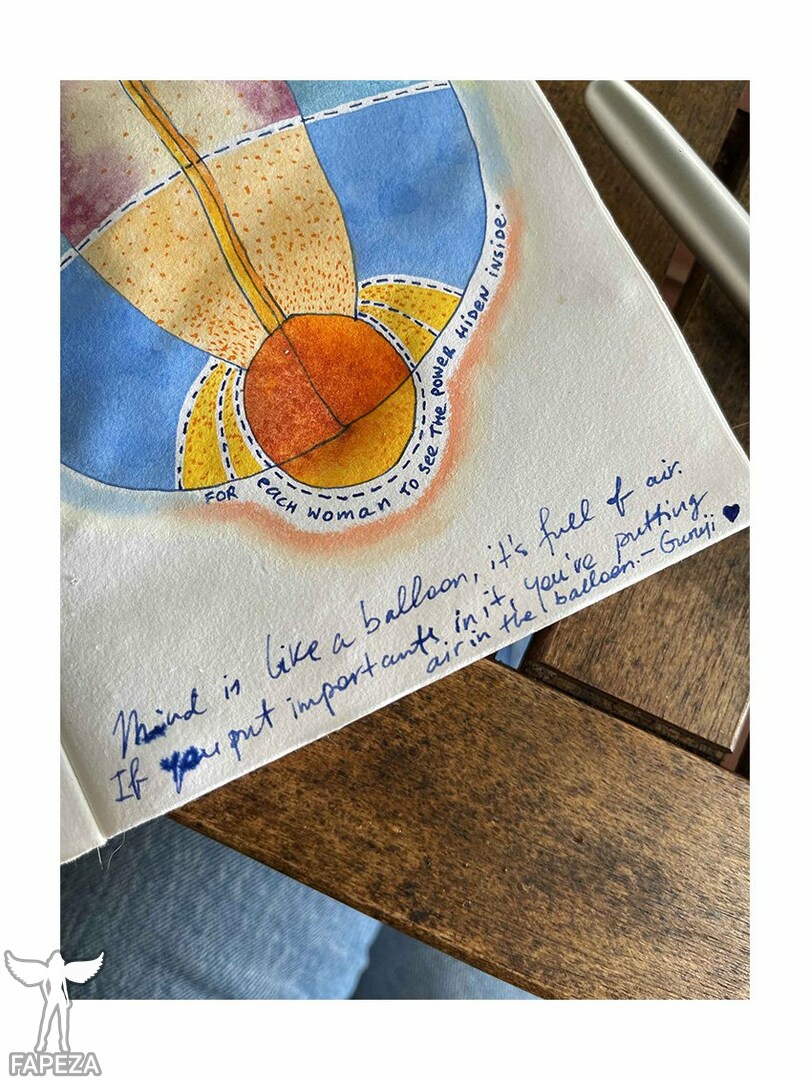 FOR eACH WOMAN TO See THE POWER HIDEN INSIDE.
Mind is like a balloon, it's full of air.
If you put importants in it, you've putting
air in the balloon. - Guruji
FAPEZA